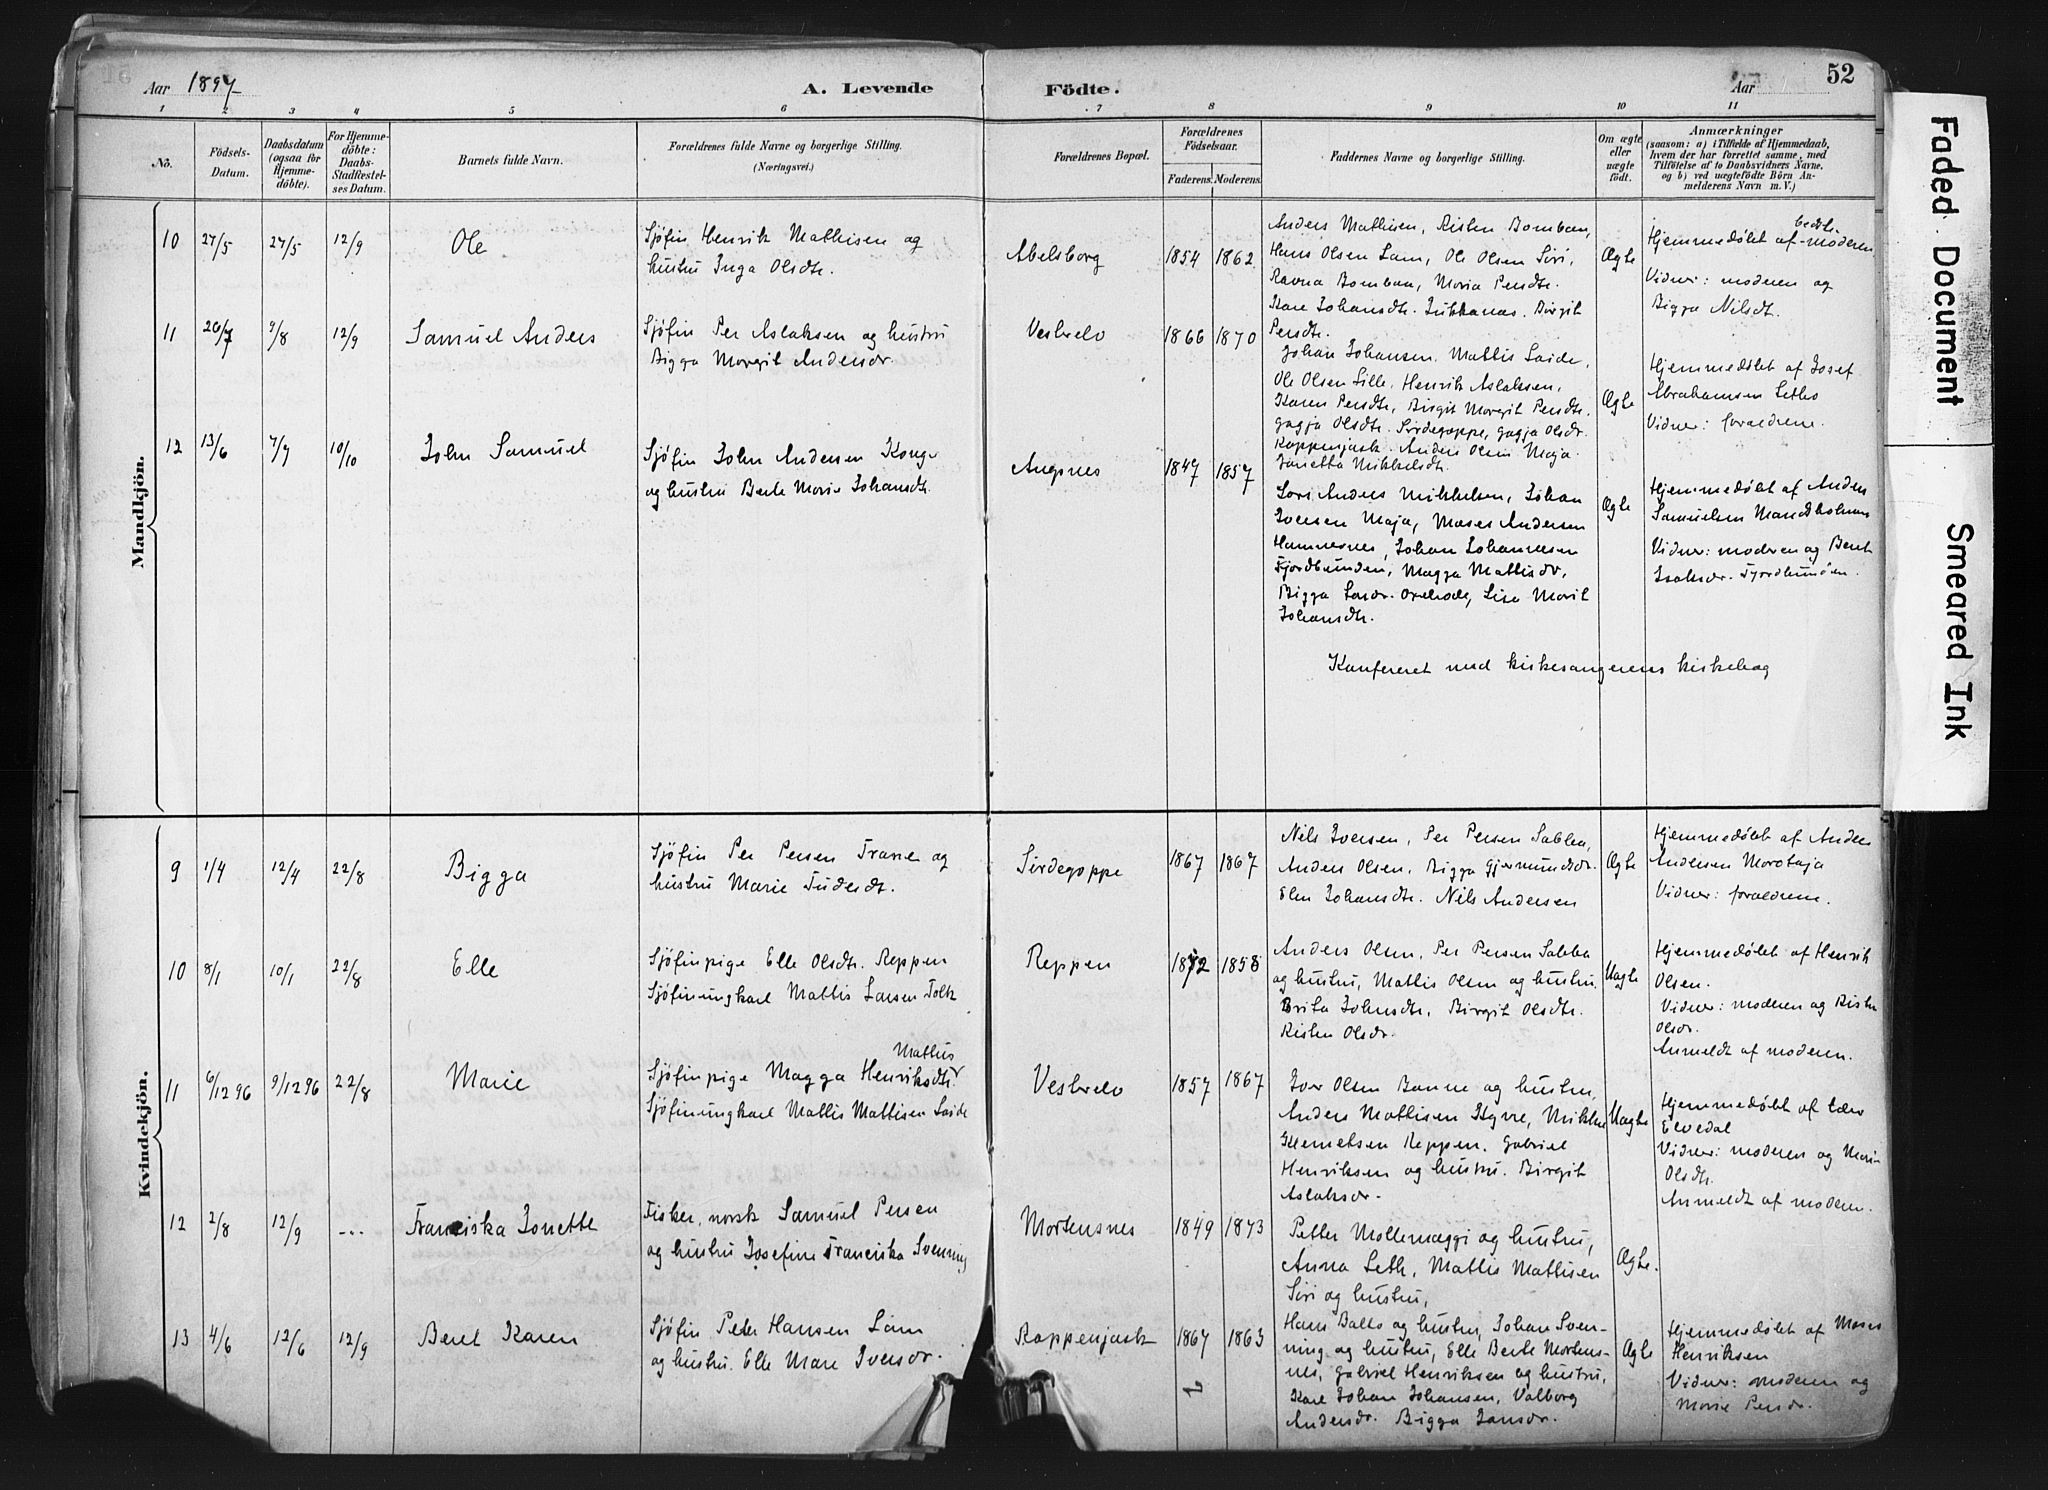 Aar 1897
A. Levende
Födte.
Aar
52
1 2 3 4 5 6 7 8 9 10 11
No.
Födsels-
Datum.
Daabsdatum
(ogsaa för
Hjemme-
döbte).
For Hjemme-
döbte:
Daabs-
Stadfæstel-
ses Datum.
Barnets fulde Navn.
Forældrenes fulde Navne og borgerlige Stilling.
(Næringsvei.)
Forældrenes Bopæl.
Forældrenes
Födselsaar.
Faderens.
Moderens.
Faddernes Navne og borgerlige Stilling.
Om ægte
eller
uægte
födt.
Anmærkninger
(saasom: a) i Tilfælde af Hjemmedaab,
hvem der har forrettet samme, med
Tilföielse af to Daabsvidners Navne,
og b) ved uægtefödte Börn An-
melderens Navn m. V.)
Mandkjön.
10 27/5 27/5 12/9 Ole
Sjöfin Henrik Mathisen og
hustru Inga Olsdtr.
Abelsborg
1854 1862
Anders Mathisen, Risten Bomban,
Hans Olsen Lam, Ole Olsen Siri,
Ravna Bomban, Maria Persdtr.
Kare Johansdtr. Jukkanas. Birgit
Persdtr.
Ægte
Hjemmedøbt af bedste-moderen
Vidner: moderen og
Bigga Nilsdtr.
11 20/7 9/8 12/9 Samuel Anders
Sjöfin Per Aslaksen og hustru
Bigga Margit Andersdr.
Vesterelv
1866 1870
Johan Johansen. Mattis Saide,
Ole Olsen Lille, Henrik Aslaksen,
Karen Persdtr, Birgit Margit Persdtr.
Gagja Olsdtr. Sirdegoppe, Gagja Olsdr.
Roppenjask. Anders Olsen Maja.
Janetta Mikkelsdtr.
Ægte
Hjemmedøbt af Josef
Abrahamsen
Vidner: forældrene.
12 13/6 7/7 10/10 John Samuel
Sjöfin John Andersen Kong
og hustru Berte Marie Johansdtr.
Angsnes
1847 1857
Lars Anders Mikkelsen, Johan
Iversen Maja, Moses Andersen
Hamnesnes, Johan Johannesen
Fjordbunden, Magga Mattisdr,
Bigga Larsdr. Lisa Marit
Johansdtr.
Ægte
Hjemmedøbt af Anders
Samuelsen
Vidner: moderen og Beret
Isaksdr. Fjordbunden.
Konfereret med kirkesangerens kirkebog
Kvindekjön.
9 1/4 12/4 22/8 Bigga
Sjöfin Per Persen Trane og
hustru Marie Tudesdtr.
Sirdegoppe
1867 1867
Nils Iversen, Per Persen Sabba,
Anders Olsen, Bigga Gjermundsdr.
Elen Johansdtr. Nils Andersen
Ægte
Hjemmedøbt af Anders
Andersen Morotaja
Vidner: forældrene.
10 8/1 10/1 22/8 Elle
Sjöfinpige Elle Olsdtr. Reppen
Sjöfinungkarl Mattis Larsen Tolk
Reppen
1872 1858
Anders Olsen, Per Persen Sabba
og hustru, Mattis Olsen og hustru,
Brita Johnsdtr, Birgit Olsdtr.
Risten Olsdr.
Uægte
Hjemmedøbt af Henrik
Olsen.
Vidner: moderen og Risten
Olsdr.
Anmeldt af moderen.
11 6/12 96 9/12 96 22/8 Marie
Sjöfinpige Magga Henriksdtr. Mathus
Sjöfinungkarl Mattis Mattisen Saide
Vesterelv
1857 1867
Iver Olsen Banne og hustru,
Anders Mattisen Kyrre, Mikkel
Klemetsen Reppen. Gabriel
Henriksen og hustru. Birgit
Aslaksdr.
Uægte
Hjemmedøbt af lærer
Elvedal
Vidner: moderen og Mari
Olsdtr.
Anmeldt af moderen.
12 2/8 12/9 --- Franciska Jonette
Fisker, norsk Samuel Persen
og hustru Josefine Franciska Svenning
Mortensnes
1849 1873
Petter Mollemæggi og hustru,
Anna Leth, Mattis Mattisen
Siri og hustru,
Ægte.
13 4/6 12/6 12/9 Beret Karen
Sjöfin Peter Hansen Lam
og hustru. Elle Mare Iversdr.
Roppenjask
1867 1863
Hans Balto og hustru, Johan Sven-
ning og hustru, Elle Berte Mortens-
nes, Gabriel Henriksen og hustru,
Karl Johan Johansen, Valborg
Andersdr. Bigga Jansdr.
Ægte
Hjemmedøbt af Moses
Henriksen
Vidner: moderen og
Marie Persdr.
Faded Document
Smeared Ink